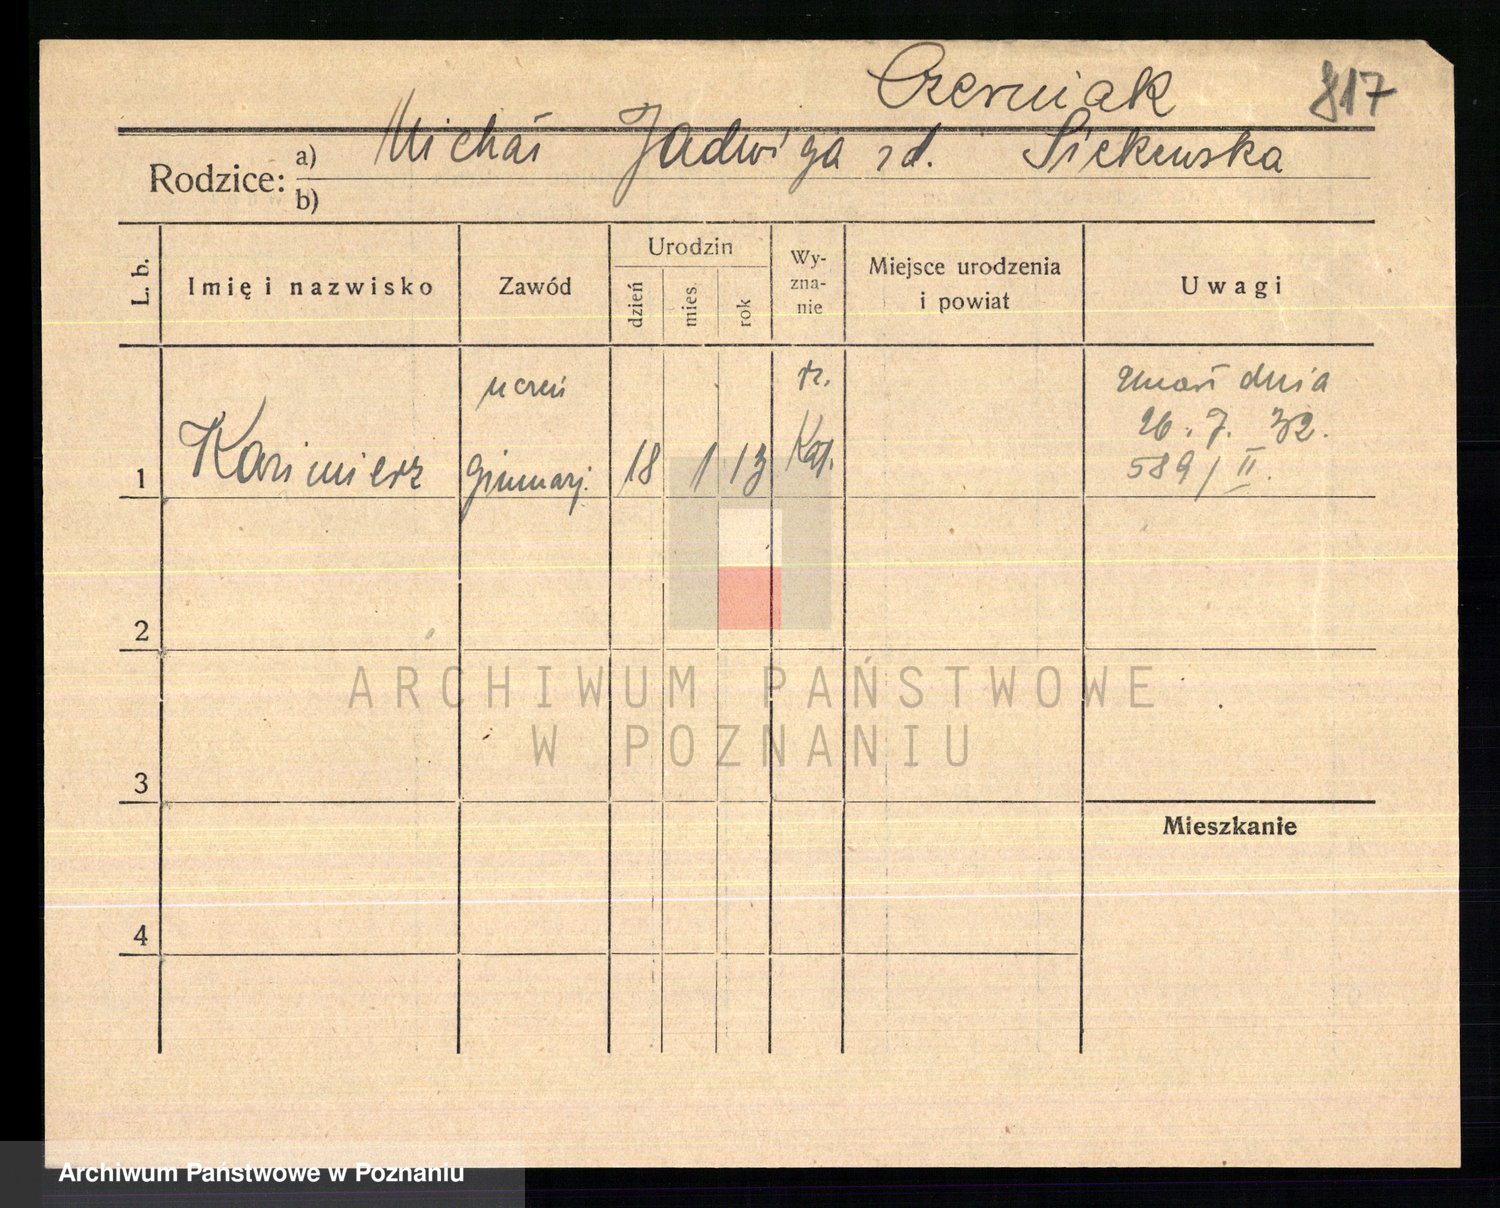 Czerniak 817
Rodzice: a) Michał Jadwiga zd. Siekewska
b)
L. b. Imię i nazwisko Zawód Urodzin dzień mies. rok Wy-zna-nie Miejsce urodzenia i powiat Uwagi
uczeń r. Umarł dnia
26. 7. 32.
1 Kazimierz Gimnazj. 18 1 13 Kat. 589/II.
2
ARCHIWUM PAŃSTWOWE
W POZNANIU
3
Mieszkanie
4
Archiwum Państwowe w Poznaniu